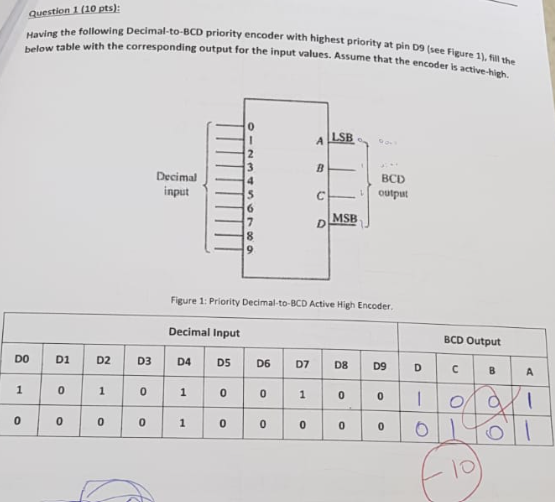 Question 1 (10 pts):
Having the following Decimal-to-BCD priority encoder with highest priority at pin D9 (see Figure 1), fill the
below table with the corresponding output for the input values. Assume that the encoder is active-high.
0
1
2
3
4
5
6
7
8
9
Decimal
input
A LSB
B
C
D MSB
BCD
output
Figure 1: Priority Decimal-to-BCD Active High Encoder.
Decimal Input BCD Output
D0 D1 D2 D3 D4 D5 D6 D7 D8 D9 D C B A
1 0 1 0 1 0 0 1 0 0 1 0 0 1
0 0 0 0 1 0 0 0 0 0 0 1 0 1
-10